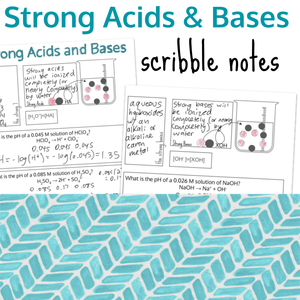 Strong Acids & Bases
scribble notes
ong Acids and Bases
Strong acids
will be ionized
completely (or
nearly completely)
by water
aqueous
hydroxides
w/ an
alkali or
alkaline
earth
metal
Strong bases will
be ionized
completely (or nearly
completely)
by water
[OH⁻]=[XOH]
is the pH of a 0.045 M solution of
0.045 0.045 0.045
H = -log(H⁺) = -log(0.045) = 1.35
is the pH of a 0.085 M solution of H₂SO₄?
H₂SO₄ → 2H⁺ + SO₄²⁻
0.085 0.17 0.085
What is the pH of a 0.026 M solution of NaOH?
NaOH → Na⁺ + OH⁻